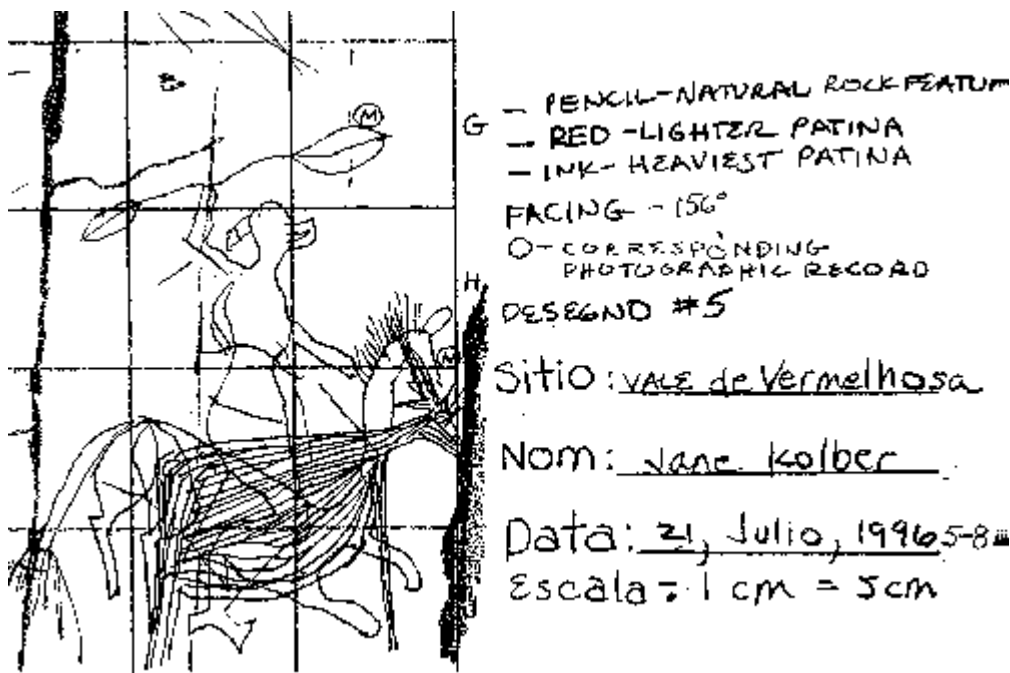 M
G
H
N
J
— PENCIL-NATURAL ROCK FEATUR
— RED-LIGHTER PATINA
— INK-HEAVIEST PATINA
FACING - 156°
O- CORRESPONDING
PHOTOGRAPHIC RECORD
DESEGNO #5
Sitio: VALE de Vermelhosa
Nom: Jane Kolber
Data: 21, Julio, 1996 5-8
Escala = 1 cm = 5cm